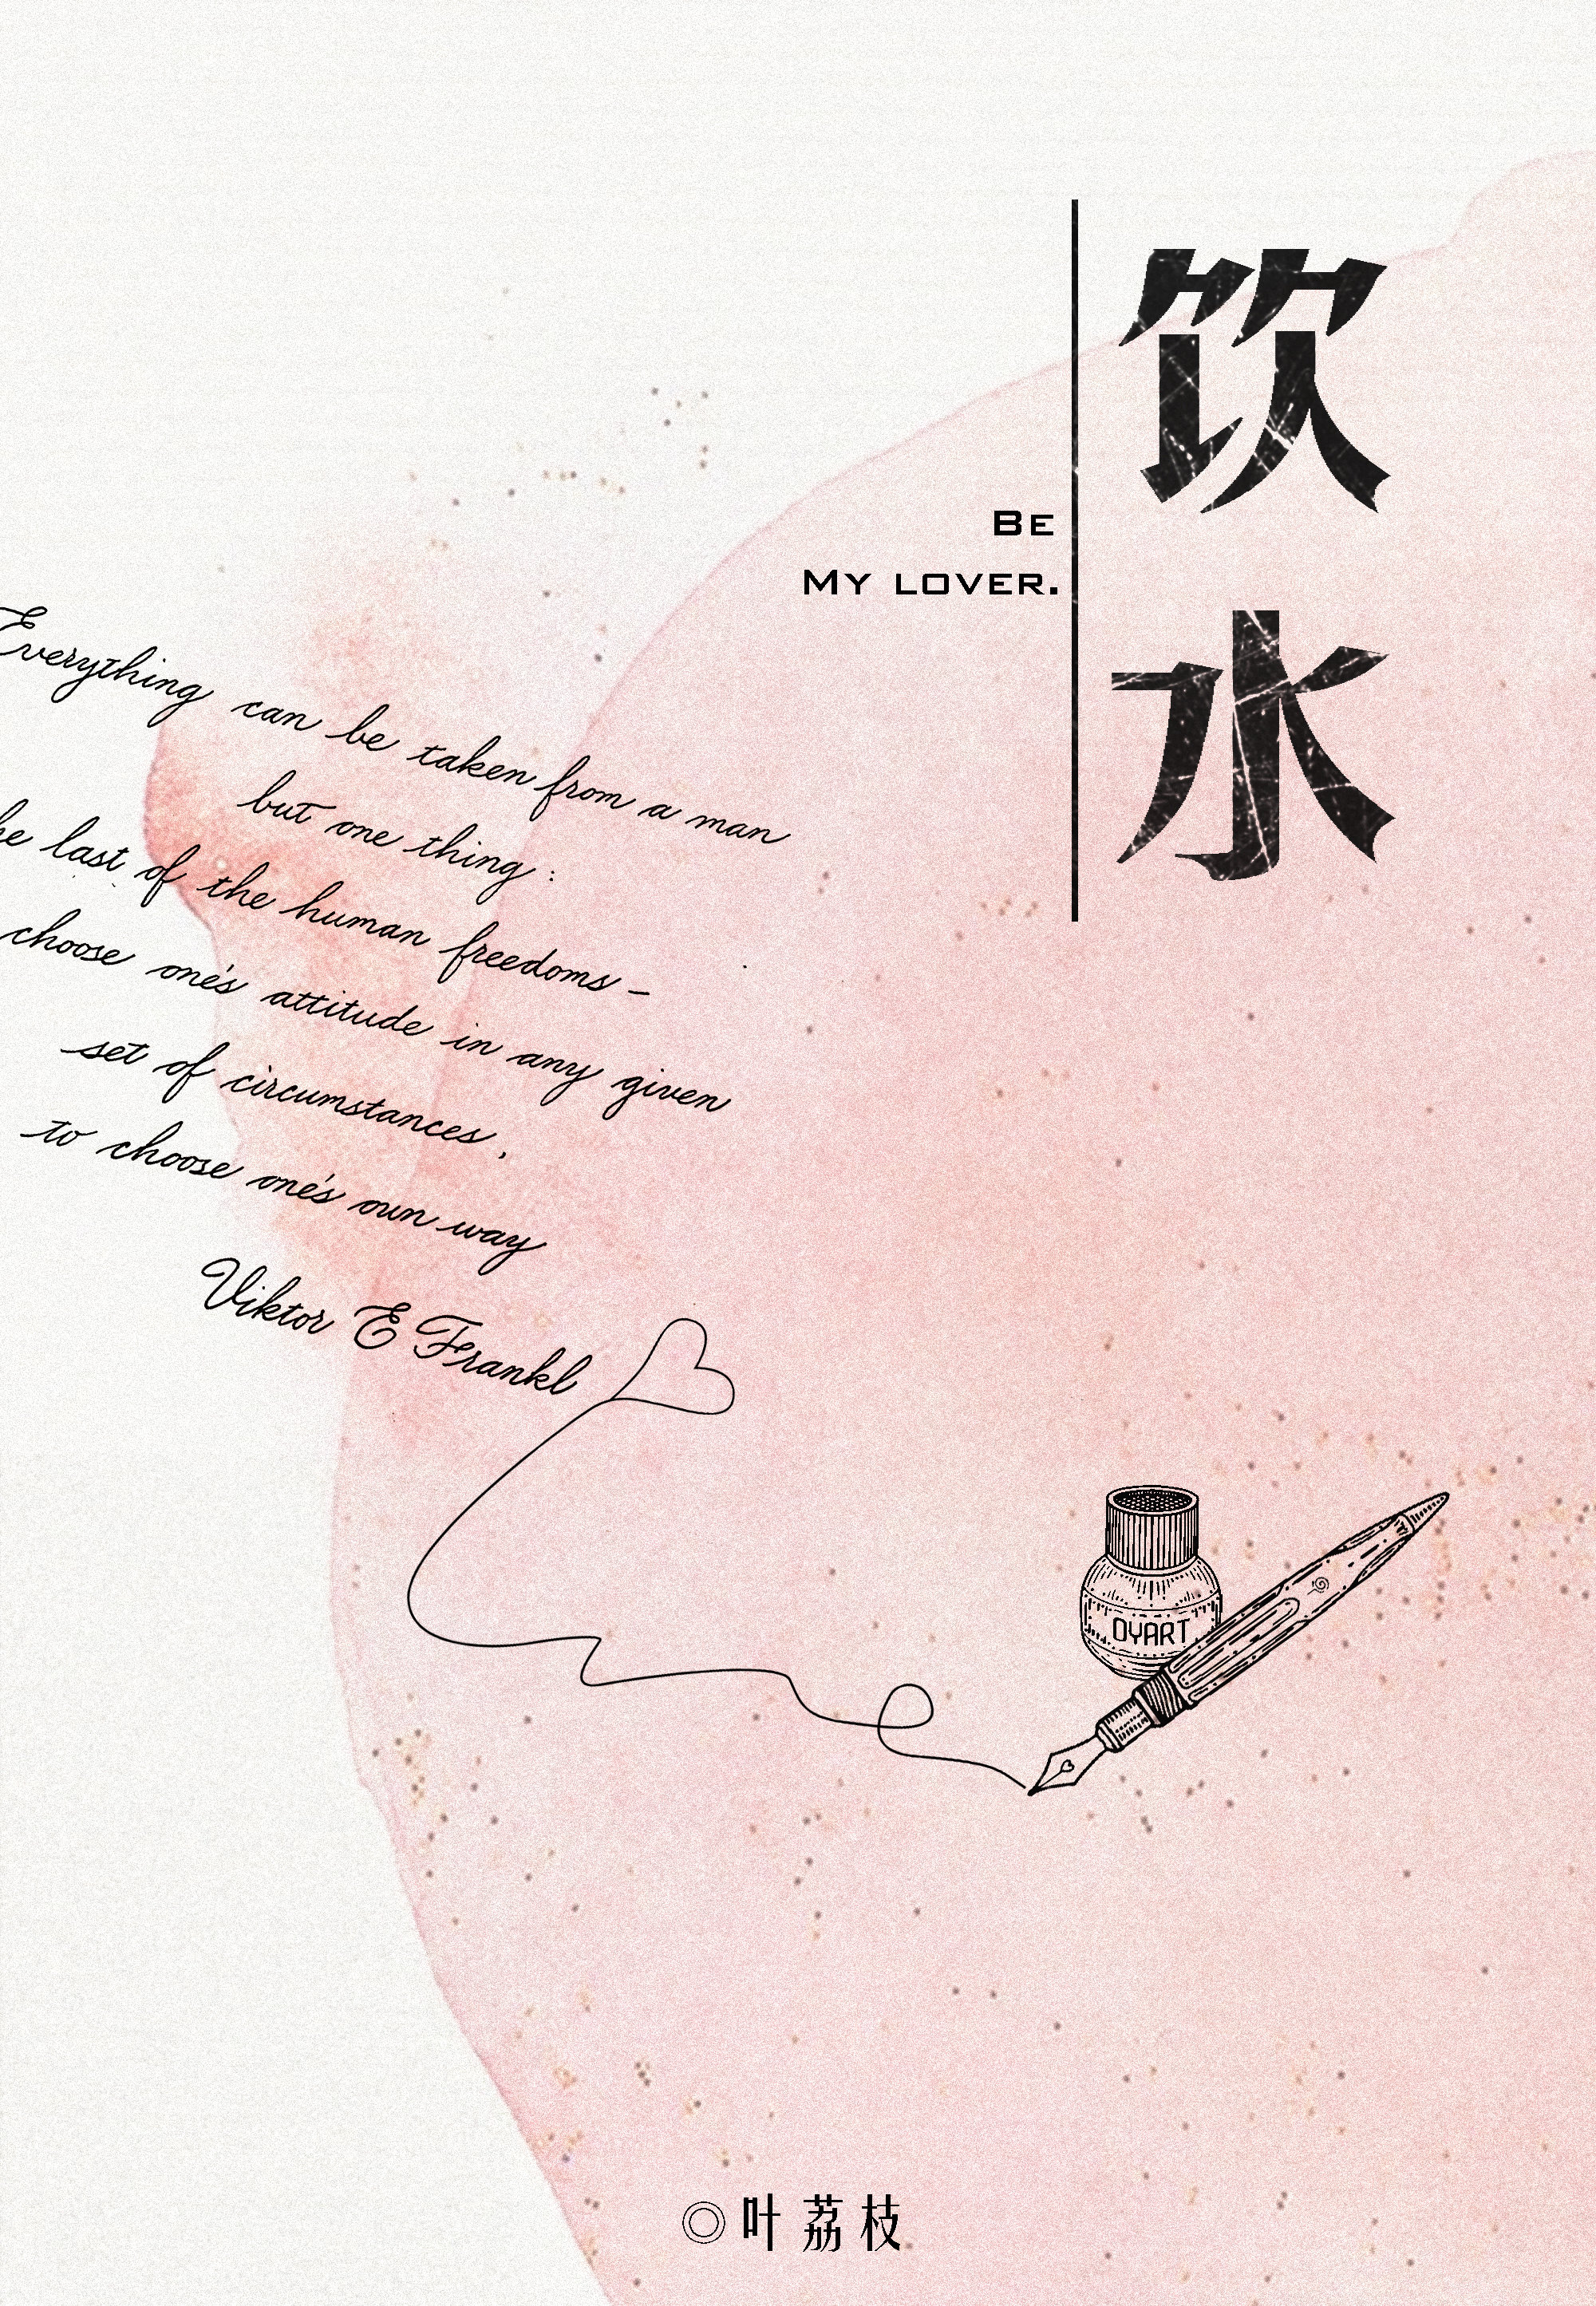 饮水
Be
My lover.
Everything can be taken from a man
but one thing:
he last of the human freedoms –
choose one's attitude in any given
set of circumstances,
to choose one's own way
Viktor E Frankl
OYART
◎叶荔枝